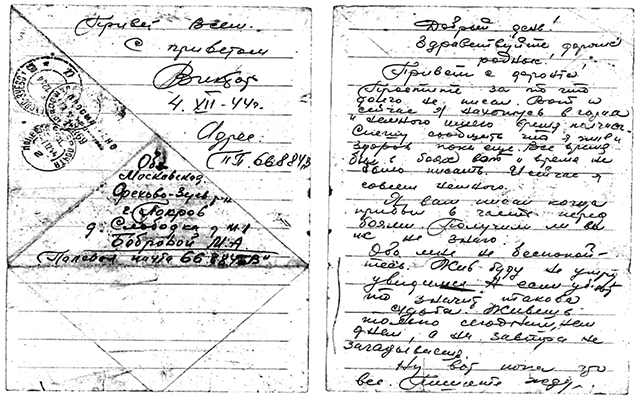 Привет всем.
С приветом
Виктор
4. XII - 44г.
Адрес:
П.П. 66884 "В"
Обл.
Московская
Орехово-Зуевский
г. Покров
д. Слободка д. №1
Бобровой М.А
Полевая почта 66884 "В"
Добрый день!
Здравствуйте, дорогие
родные!
Привет с фронта!
Простите за то что
долго не писал. Вот и
сейчас я нахожусь в
и немного имею время
Спешу сообщить что я жив и
здоров пока еще. Все время
был в боях и время не
было писать. И сейчас я
совсем немного.
Я вам писал когда
прибыл в часть перед
боями. Получили ли вы
их не знаю.
Обо мне не беспокой-
тесь. Жив буду не умру
увидимся. А если убьют
то значит такова
судьба. Живешь
только сегодняшнем
днем, а на завтра не
загадываешь.
Ну вот пока что
все. Пишите жду.